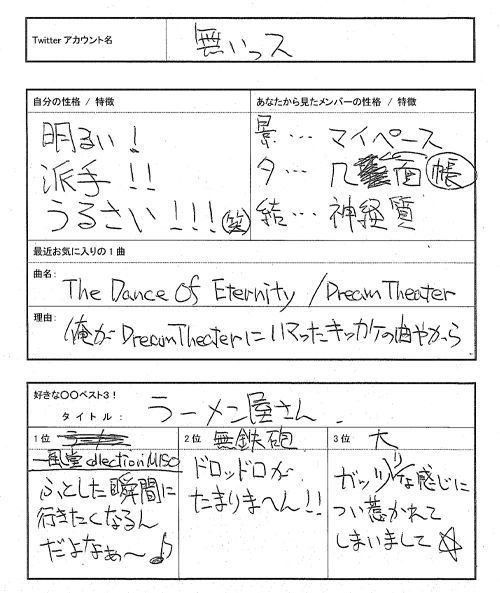 Twitter アカウント名
無いっス
自分の性格 / 特徴
明るい!
派手!!
うるさい!!! 笑
あなたから見たメンバーの性格 / 特徴
景… マイペース
夕… 几面 帳
結… 神経質
最近お気に入りの1曲
曲名:
The Dance Of Eternity / Dream Theater
理由:
俺がDream Theaterにハマったキッカケの曲やから
好きな〇〇ベスト3!
タイトル:
ラーメン屋さん.
1位
一風堂collection MISO
ふとした瞬間に
行きたくなるん
だよなぁ〜♪
2位 無鉄砲
ドロッドロが
たまりまへん!!
3位 大
ガッツリな感じに
つい惹かれて
しまいまして☆